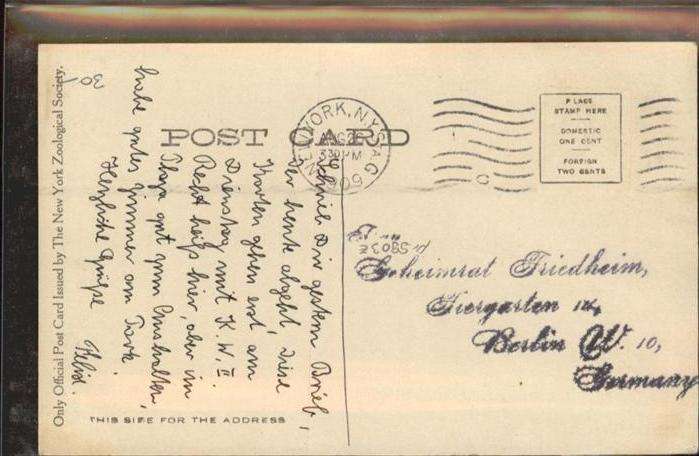 Only Official Post Card Issued by The New York Zoological Society.
30
POST CARD
YORK, N.Y.
AUG 26
330 PM
PLACE
STAMP HERE
DOMESTIC
ONE CENT
FOREIGN
TWO CENTS
schrieb Dir gestern Brief,
der heute abgeht, diese
Karten gehen erst am
Dienstag mit K. W. II.
Recht heiß hier, aber im
Plaza gut zum Aushalten,
habe gutes Zimmer am Park.
Herzliche Grüße
Felix.
Geheimrat Friedheim,
Tiergarten
Berlin W. 10,
Germany
THIS SIDE FOR THE ADDRESS